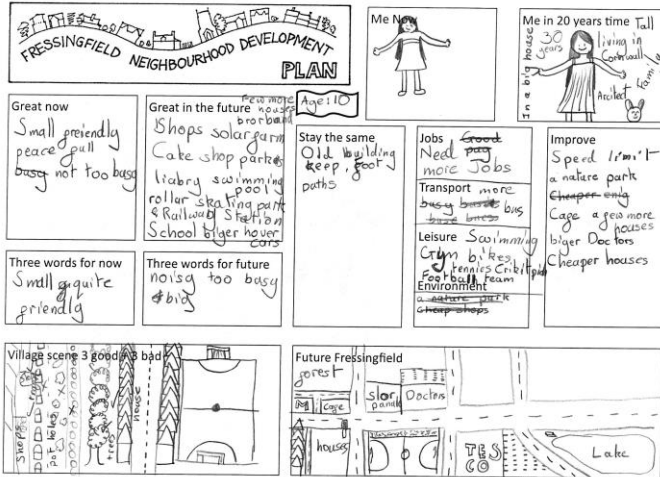 FRESSINGFIELD NEIGHBOURHOOD DEVELOPMENT
PLAN
Me Now
Me in 20 years time
Tall
30
years
living in
Cornwall
Arcitect
Family
In a big house
Great now
Small freiendly
peace full
busy not too busy
Great in the future
Few more
houses
brorband
Shops solar farm
Cake shop parks
liabry swimming
pooly
rollar skating park
& Railway Station
School biger hover
cars
Age: 10
Stay the same
Old building
keep, foot
paths
Jobs
Good
Need pay
more Jobs
Transport more
busy
bus
Leisure Swimming
Gym bikes
tennies Crikit pich
Football team
Environment
a nature park
cheap shops
Improve
Speed limit
a nature park
Cheaper
Cage a few more
houses
biger Doctors
Cheaper houses
Three words for now
Small quite
friendly
Three words for future
noisy too busy
big
Village scene 3 good + 3 bad
Shops
pot holes
trees
house
Future Fressingfield
forest
cage
Doctors
houses
TES
CO
Lake